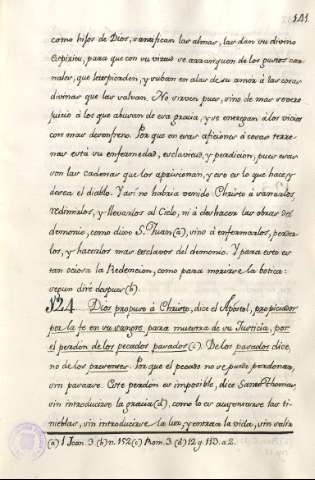 141
como hijos de Dios, santifican las almas, las dan su divino
Espiritu, para que con su virtud se arranquen de los gustos car-
nales, que les pierden, y suban en alas de su amor à las cosas
divinas que las salvan. No sirven pues, sino de mas severo
juicio à los que abusan de esa gracia, y se entregan à los vicios
con mas desenfreno. Por que en esas aficiones à cosas terre-
nas está su enfermedad, esclavitud, y perdicion, pues esas
son las cadenas que los aprisionan, y eso es lo que hace, y
desea el diablo. Y asi no habria venido Christo à sanarlos
redimirlos, y llevarlos al Cielo, ni à deshacer las obras del
demonio, como dice S. Juan (a), sino à enfermarlos, perder-
los, y hacerlos mas esclavos del demonio. Y para esto es
tan ociosa la Redencion, como para morirse la botica:
segun diré despues (b).
124 Dios propuso à Christo, dice el Apóstol, propiciador
por la fe en su sangre, para muestra de su Justicia, por
el perdon de los pecados pasados (c). De los pasados dice,
no de los presentes. Por que el pecado no se puede perdonar,
sin pasarse. Este perdon es imposible, dice Santo Thomas,
sin introducirse la gracia (d), como lo es ausentarse las ti-
nieblas, sin introducirse la luz, y entrar la vida, sin salir
(a) 1 Joan. 3. (b) n. 152 (c) Rom. 3. (d) 12 q. 113. a. 2.